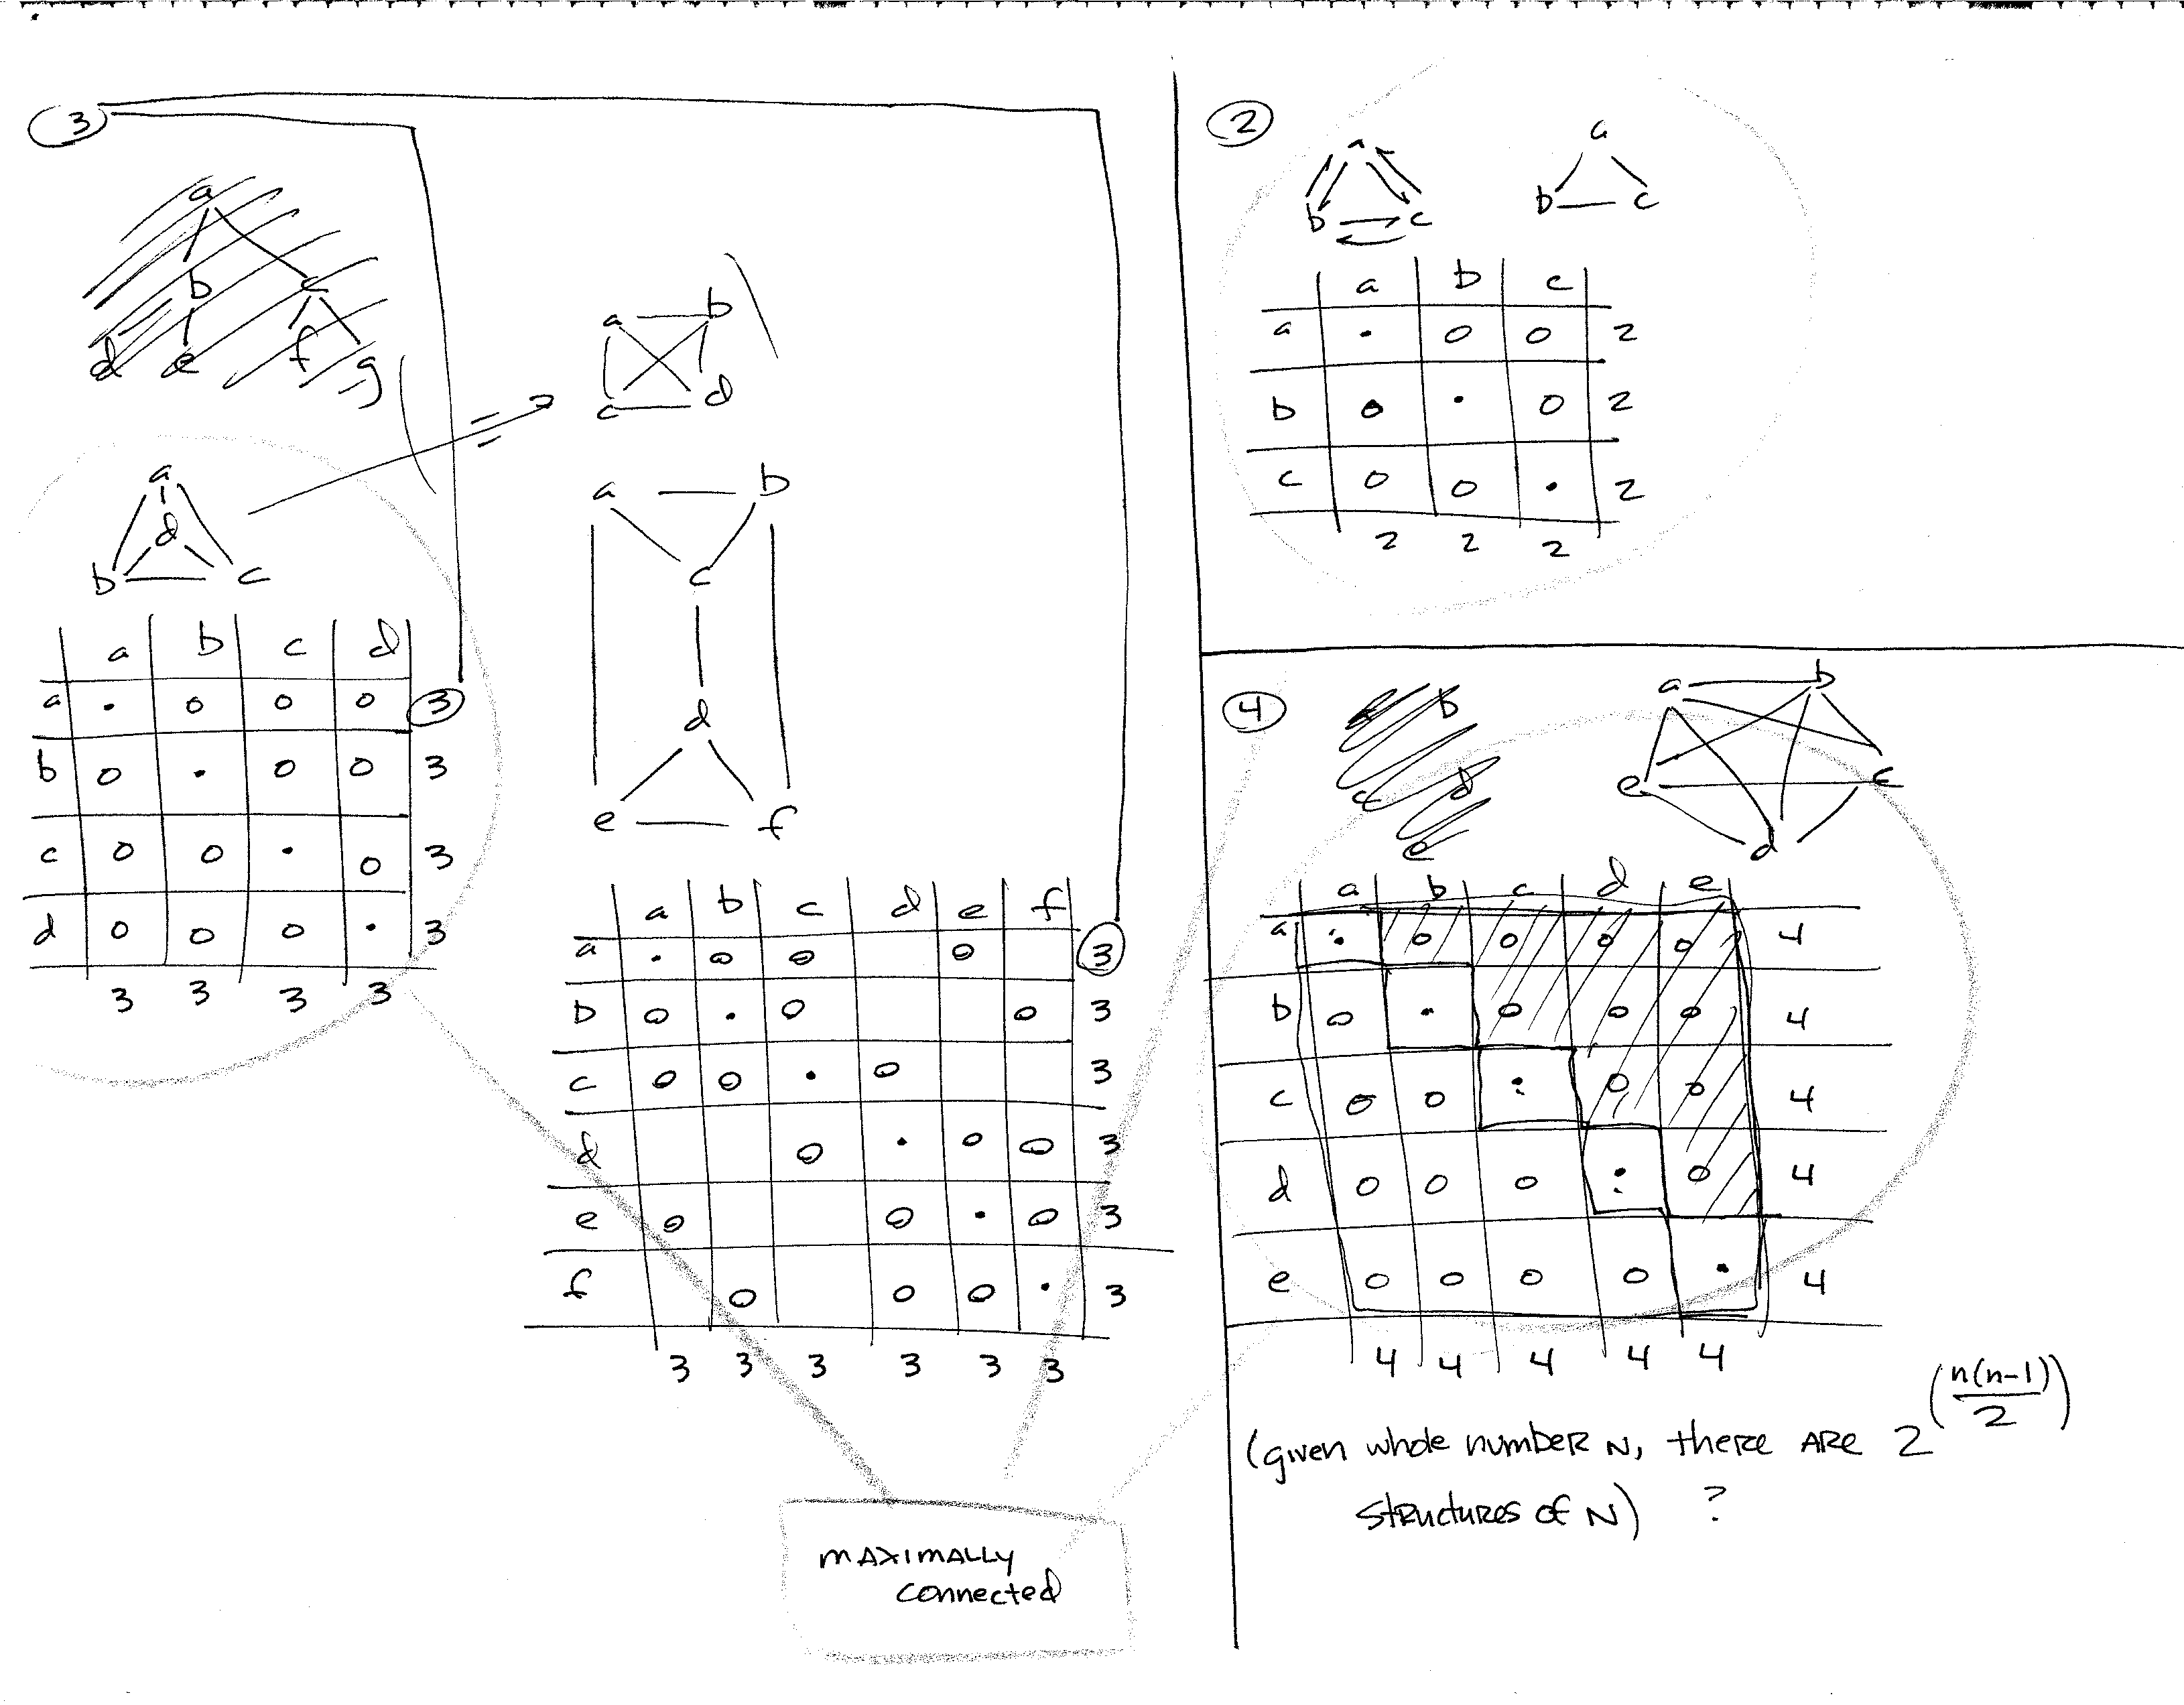 3
a
b c
d e f g
a b
c d
a
d
b c
a b c d
a . o o o 3
b o . o o 3
c o o . o 3
d o o o . 3
3 3 3 3
a b
c
d
e f
a b c d e f
a . o o o 3
b o . o o 3
c o o . o 3
d o . o o 3
e o o . o 3
f o o o . 3
3 3 3 3 3 3
maximally
connected
2
a a
b c b c
a b c
a . o o 2
b o . o 2
c o o . 2
2 2 2
4
b
c d
e
a b
e c
d
a b c d e
a . o o o o 4
b o . o o o 4
c o o . o o 4
d o o o . o 4
e o o o o . 4
4 4 4 4 4
(given whole number N, there are 2^(n(n-1)/2)
structures of N) ?